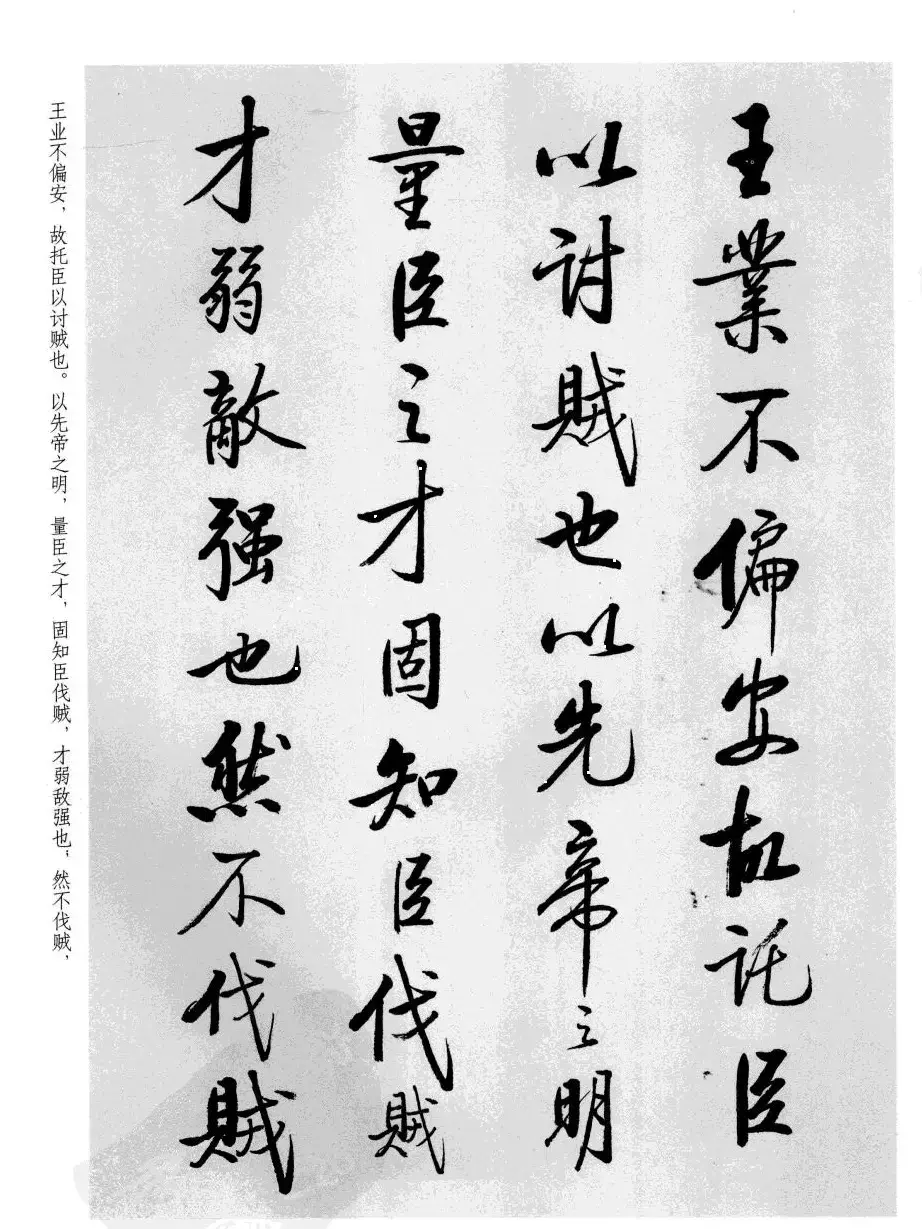 王業不偏安故託臣
以討賊也以先帝之明
量臣之才固知臣伐賊
才弱敵强也然不伐賊
王业不偏安，故托臣以讨贼也。以先帝之明，量臣之才，固知臣伐贼，才弱敌强也；然不伐贼，